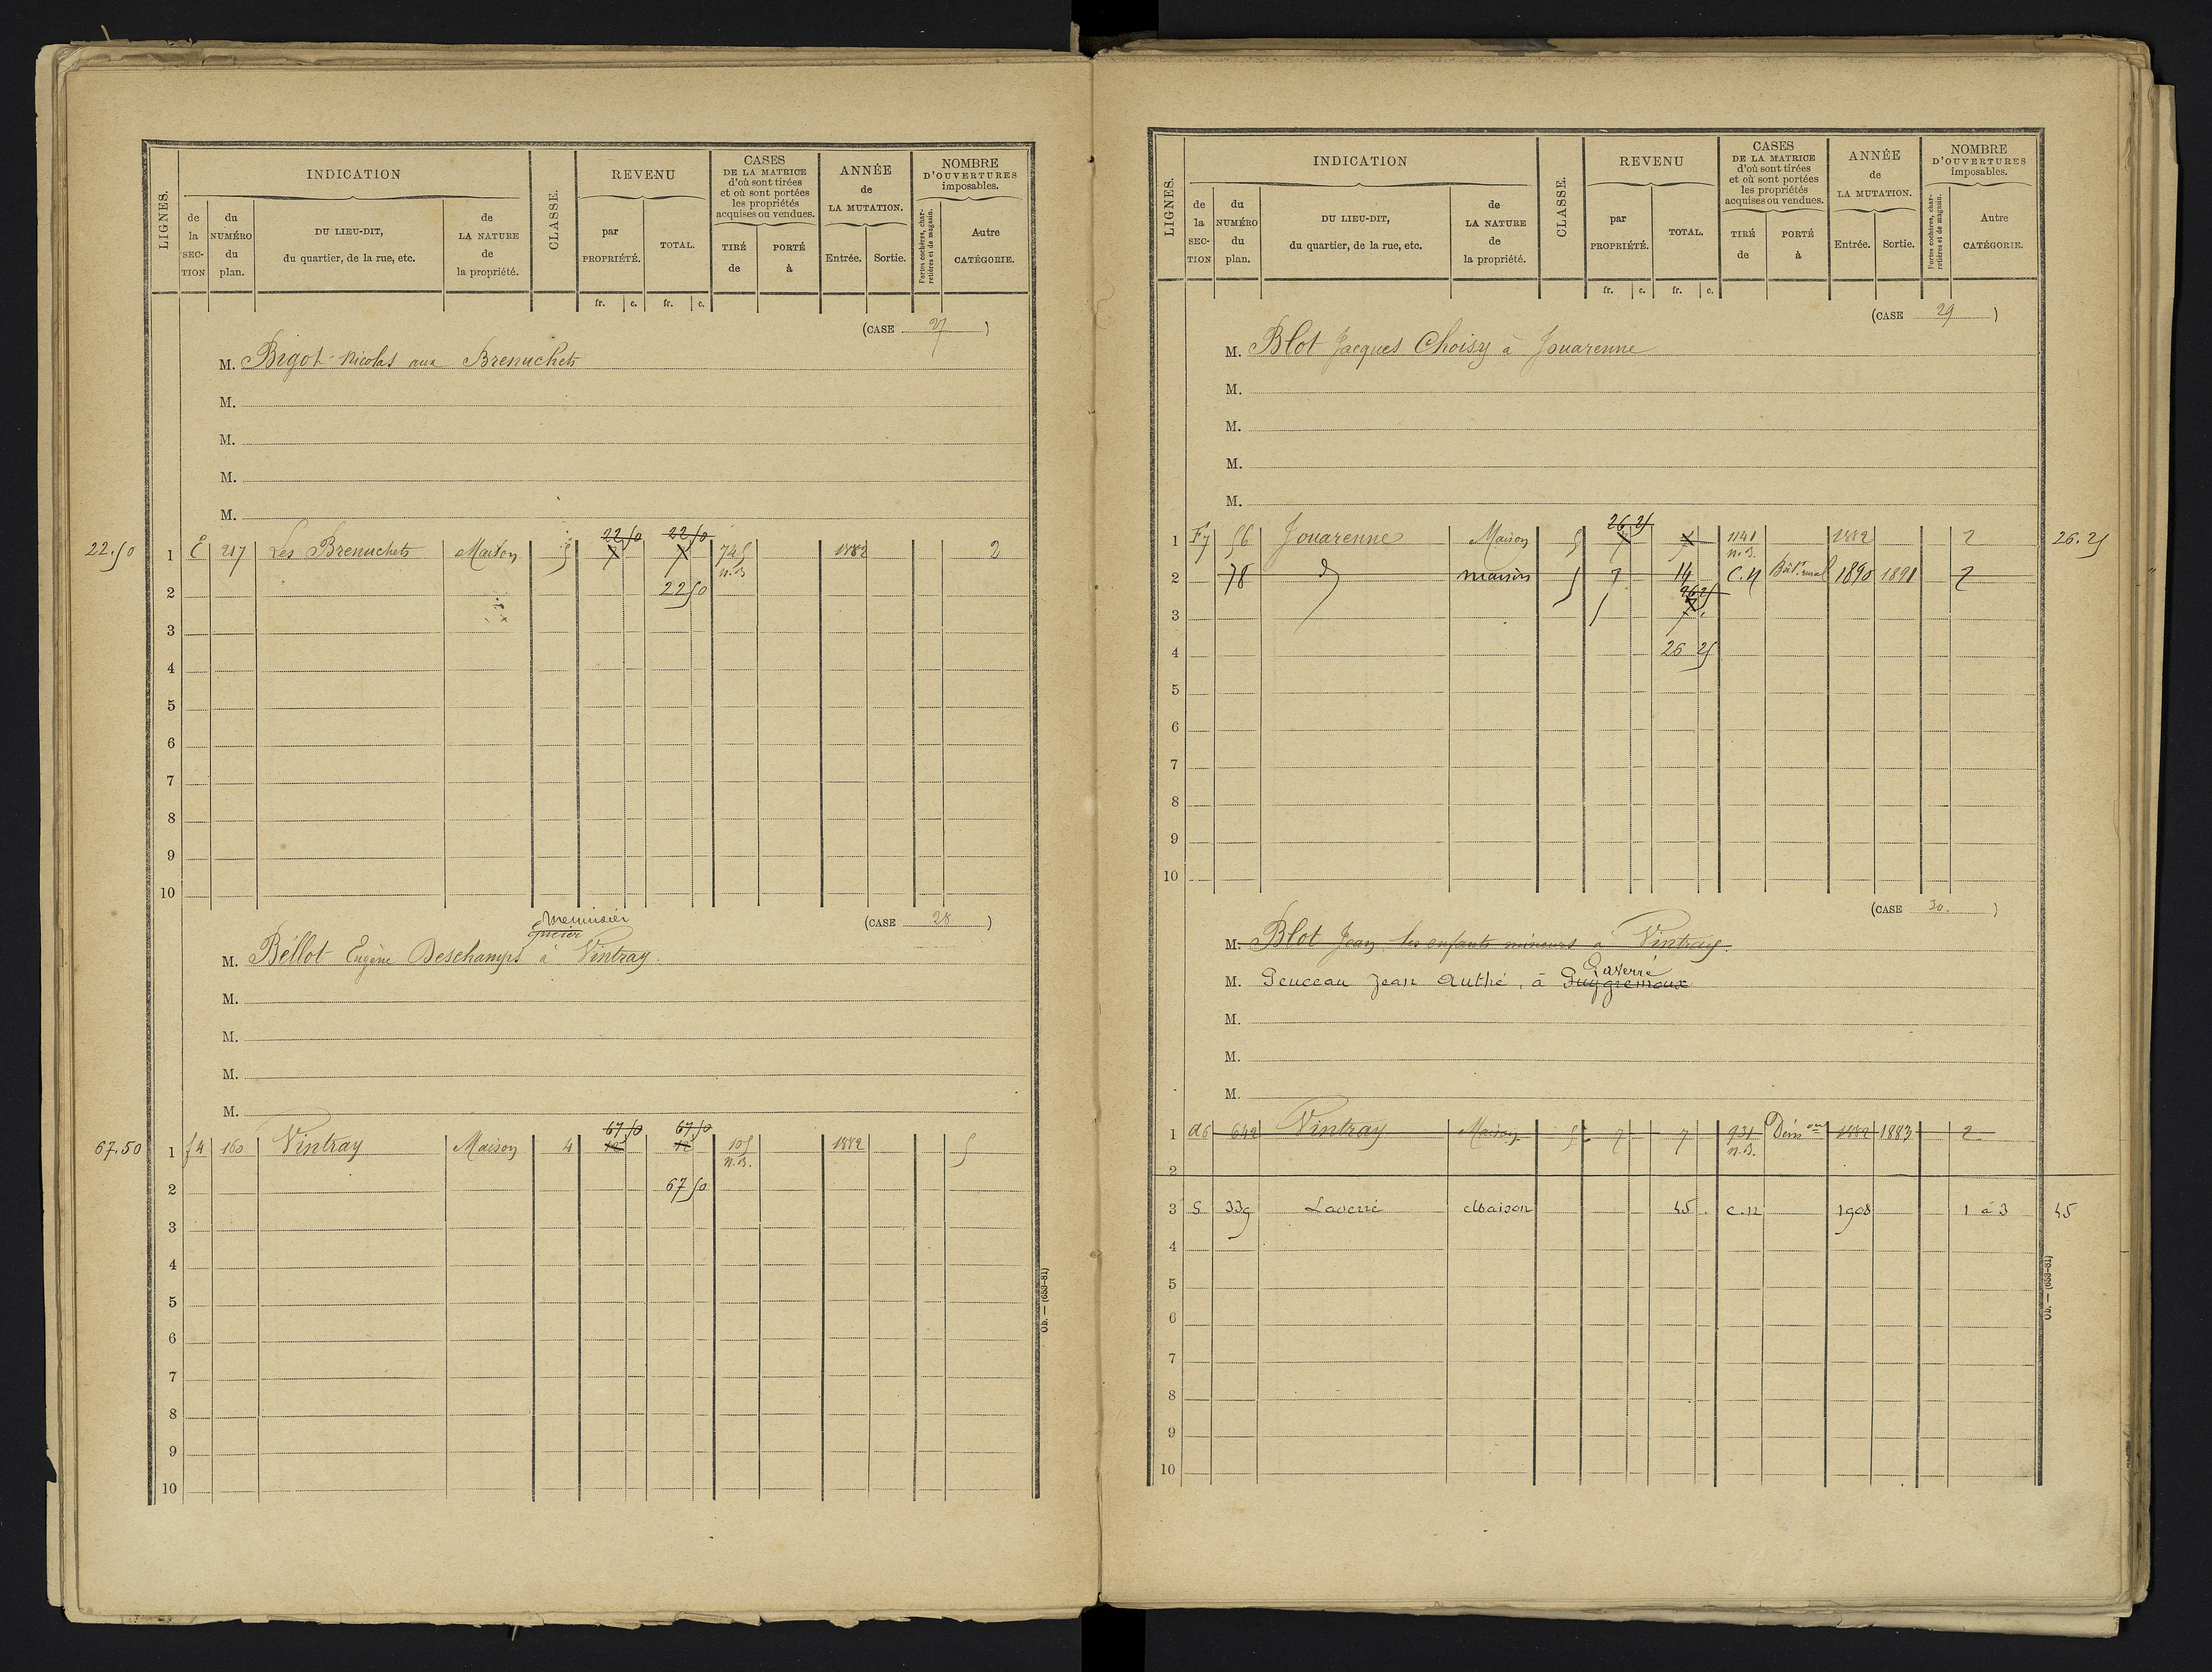 INDICATION
REVENU
CASES
DE LA MATRICE
d'où sont tirées
et où sont portées
les propriétés
acquises ou vendues.
ANNÉE
de
LA MUTATION.
NOMBRE
D'OUVERTURES
imposables.
LIGNES.
de
la
SEC-
TION
du
NUMÉRO
du
plan.
DU LIEU-DIT,
du quartier, de la rue, etc.
de
LA NATURE
de
la propriété.
CLASSE.
par
PROPRIÉTÉ.
TOTAL.
TIRÉ
de
PORTÉ
à
Entrée.
Sortie.
Portes cochères, char-
retières et de magasin.
Autre
CATÉGORIE.
fr. c. fr. c.
(CASE 27)
M. Bigot Nicolas aux Brenuchets
M.
M.
M.
M.
22 50 22 50
22.50 1 E 217 Les Brenuchets Maison 5 7 7 745 1882 2
n.B.
2 22 50
3
4
5
6
7
8
9
10
(CASE 28)
menuisier
épicier
M. Bellot Eugène Deschamps à Vintray.
M.
M.
M.
M.
67 50 67 50
67.50 1 f4 160 Vintray Maison 4 12 12 105 1882 5
n.B.
2 67 50
3
4
5
6
7
8
9
10
Ob. — (653-81)
INDICATION
REVENU
CASES
DE LA MATRICE
d'où sont tirées
et où sont portées
les propriétés
acquises ou vendues.
ANNÉE
de
LA MUTATION.
NOMBRE
D'OUVERTURES
imposables.
LIGNES.
de
la
SEC-
TION
du
NUMÉRO
du
plan.
DU LIEU-DIT,
du quartier, de la rue, etc.
de
LA NATURE
de
la propriété.
CLASSE.
par
PROPRIÉTÉ.
TOTAL.
TIRÉ
de
PORTÉ
à
Entrée.
Sortie.
Portes cochères, char-
retières et de magasin.
Autre
CATÉGORIE.
fr. c. fr. c.
(CASE 29)
M. Blot Jacques Choisy à Jouarenne
M.
M.
M.
M.
26 25
1 F7 56 Jouarenne Maison 5 7 7 1141 1882 2 26.25
n.B.
2 78 d° maison 5 7 14 C.N Bât. rural 1890 1891 2
26 25
3 7
4 26 25
5
6
7
8
9
10
(CASE 30.)
M. Blot Jean les enfants mineurs à Vintray.
Laverré
M. Penceau Jean Authé, à Puygremoux
M.
M.
M.
1 d6 642 Vintray Maison 5 7 7 931 Dém.on 1882 1883 2
n.B.
2
3 S 339 Laverré Maison 45 C.N 1908 1 à 3 45
4
5
6
7
8
9
10
Ob. — (653-81)